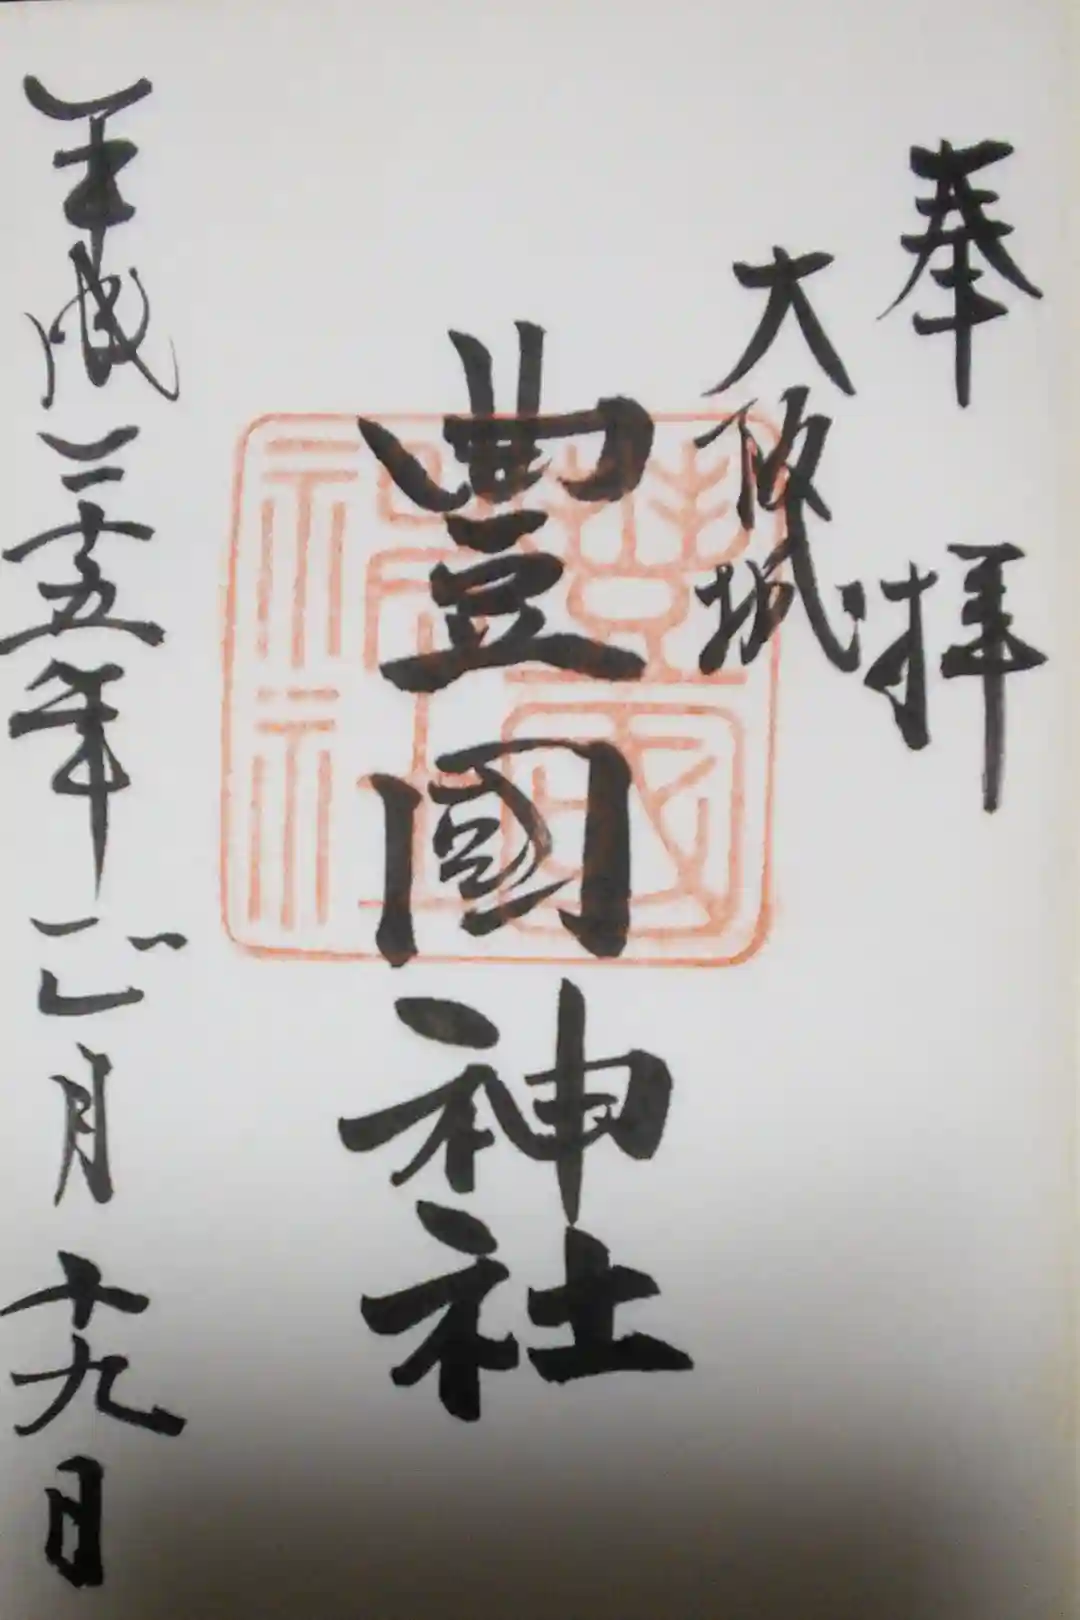 奉拝
大阪城
豊國神社
平成二十五年月十九日
豊國
神社